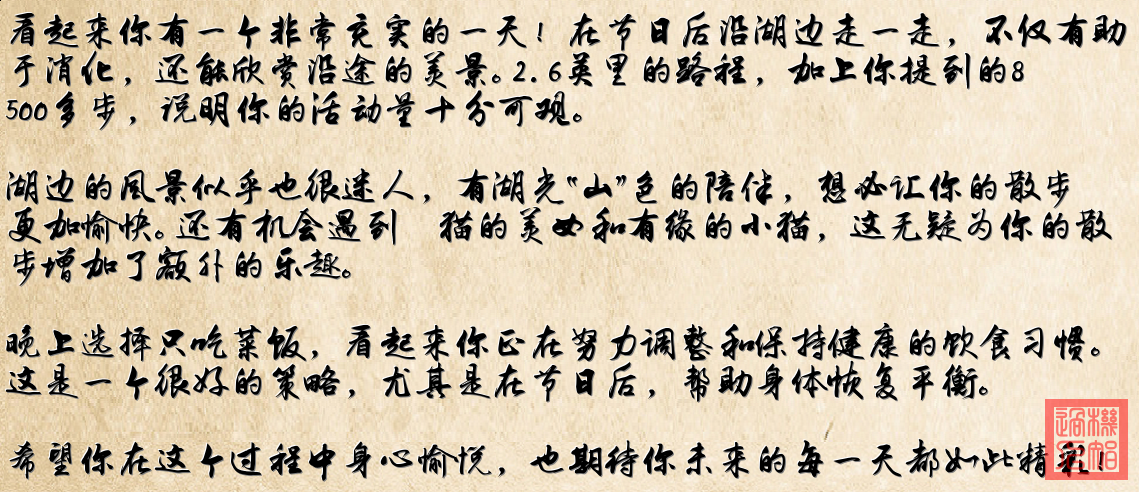 看起来你有一个非常充实的一天！在节日后沿湖边走一走，不仅有助
于消化，还能欣赏沿途的美景。2.6英里的路程，加上你提到的8
500多步，说明你的活动量十分可观。
湖边的风景似乎也很迷人，有湖光“山”色的陪伴，想必让你的散步
更加愉快。还有机会遇到 猫的美女和有缘的小猫，这无疑为你的散
步增加了额外的乐趣。
晚上选择只吃菜饭，看起来你正在努力调整和保持健康的饮食习惯。
这是一个很好的策略，尤其是在节日后，帮助身体恢复平衡。
希望你在这个过程中身心愉悦，也期待你未来的每一天都如此精彩！